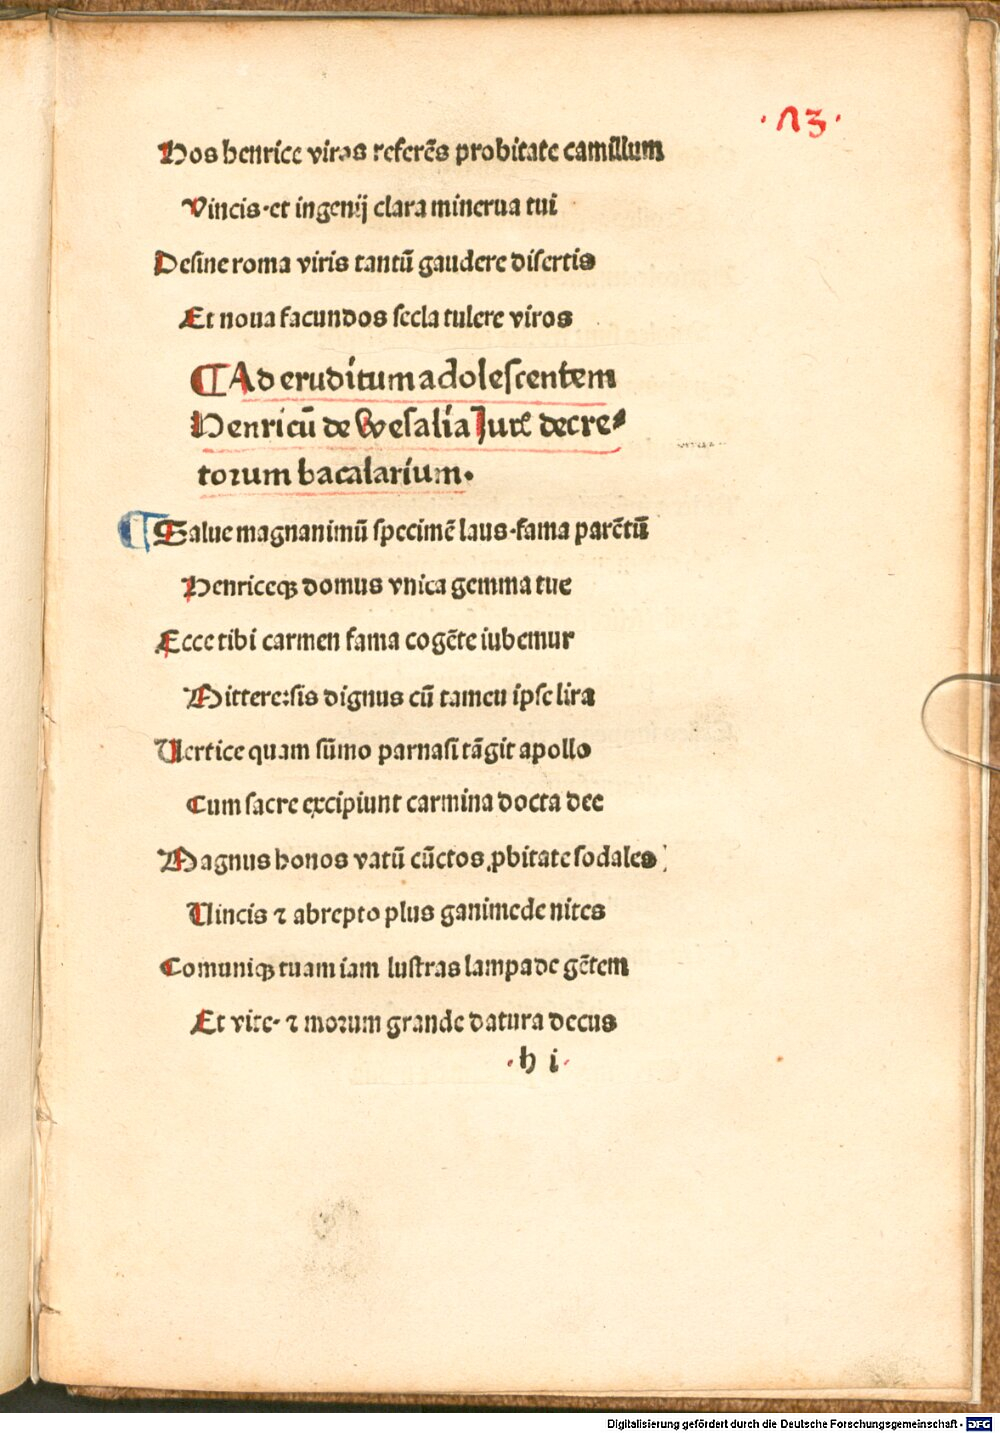 ·113·
Hos henrice viros referēs probitate camillum
Vincis·et ingenij clara minerua tui
Desine roma viris tantū gaudere disertis
Et noua facundos secla tulere viros
¶Ad eruditum adolescentem
Henricū de Wesalia Juꝝ decre⸗
torum bacalarium.
¶Salue magnanimū specimē laus·fama parētū
Henriceqꝫ domus vnica gemma tue
Ecce tibi carmen fama cogēte iubemur
Mittere:sis dignus cū tamen ipse lira
Uertice quam sūmo parnasi tāgit apollo
Cum sacre excipiunt carmina docta dee
Magnus honos vatū cūctos ꝓbitate sodales
Uincis ⁊ abrepto plus ganimede nites
Comuniqꝫ tuam iam lustras lampade gētem
Et vite· ⁊ morum grande datura decus
·h i·
Digitalisierung gefördert durch die Deutsche Forschungsgemeinschaft - DFG